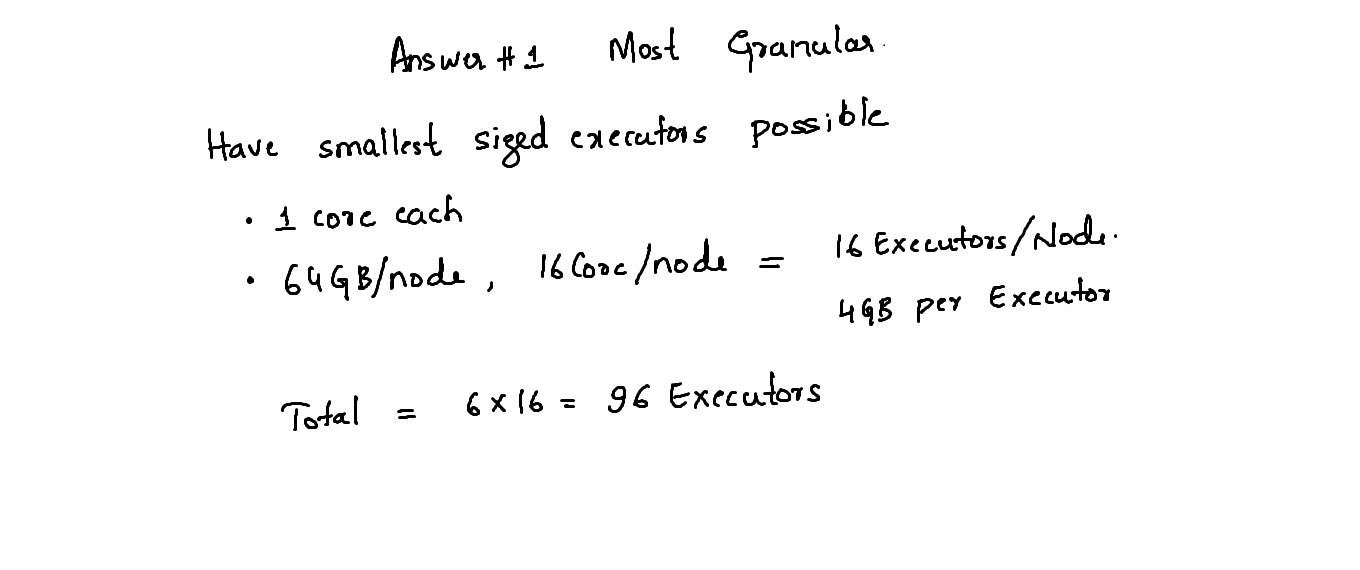 Answer #1 Most Granular.
Have smallest sized executors possible
• 1 core each
• 64GB/node, 16 Core/node = 16 Executors/Node.
4GB per Executor
Total = 6 x 16 = 96 Executors